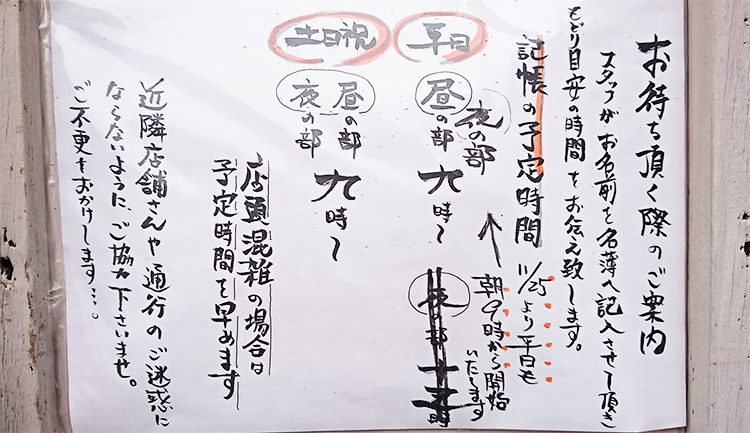 お待ち頂く際のご案内
スタッフがお名前を名簿へ記入させて頂き
もどり目安の時間をお伝え致します。
記帳の予定時間
11/25より平日も
朝9時から開始
いたします
平日
昼の部 九時〜
夜の部
夜の部 十五時
土日祝
昼の部 九時〜
夜の部
店頭混雑の場合は
予定時間を早めます
近隣店舗さんや通行のご迷惑に
ならないように、ご協力下さいませ。
ご不便をおかけします…。